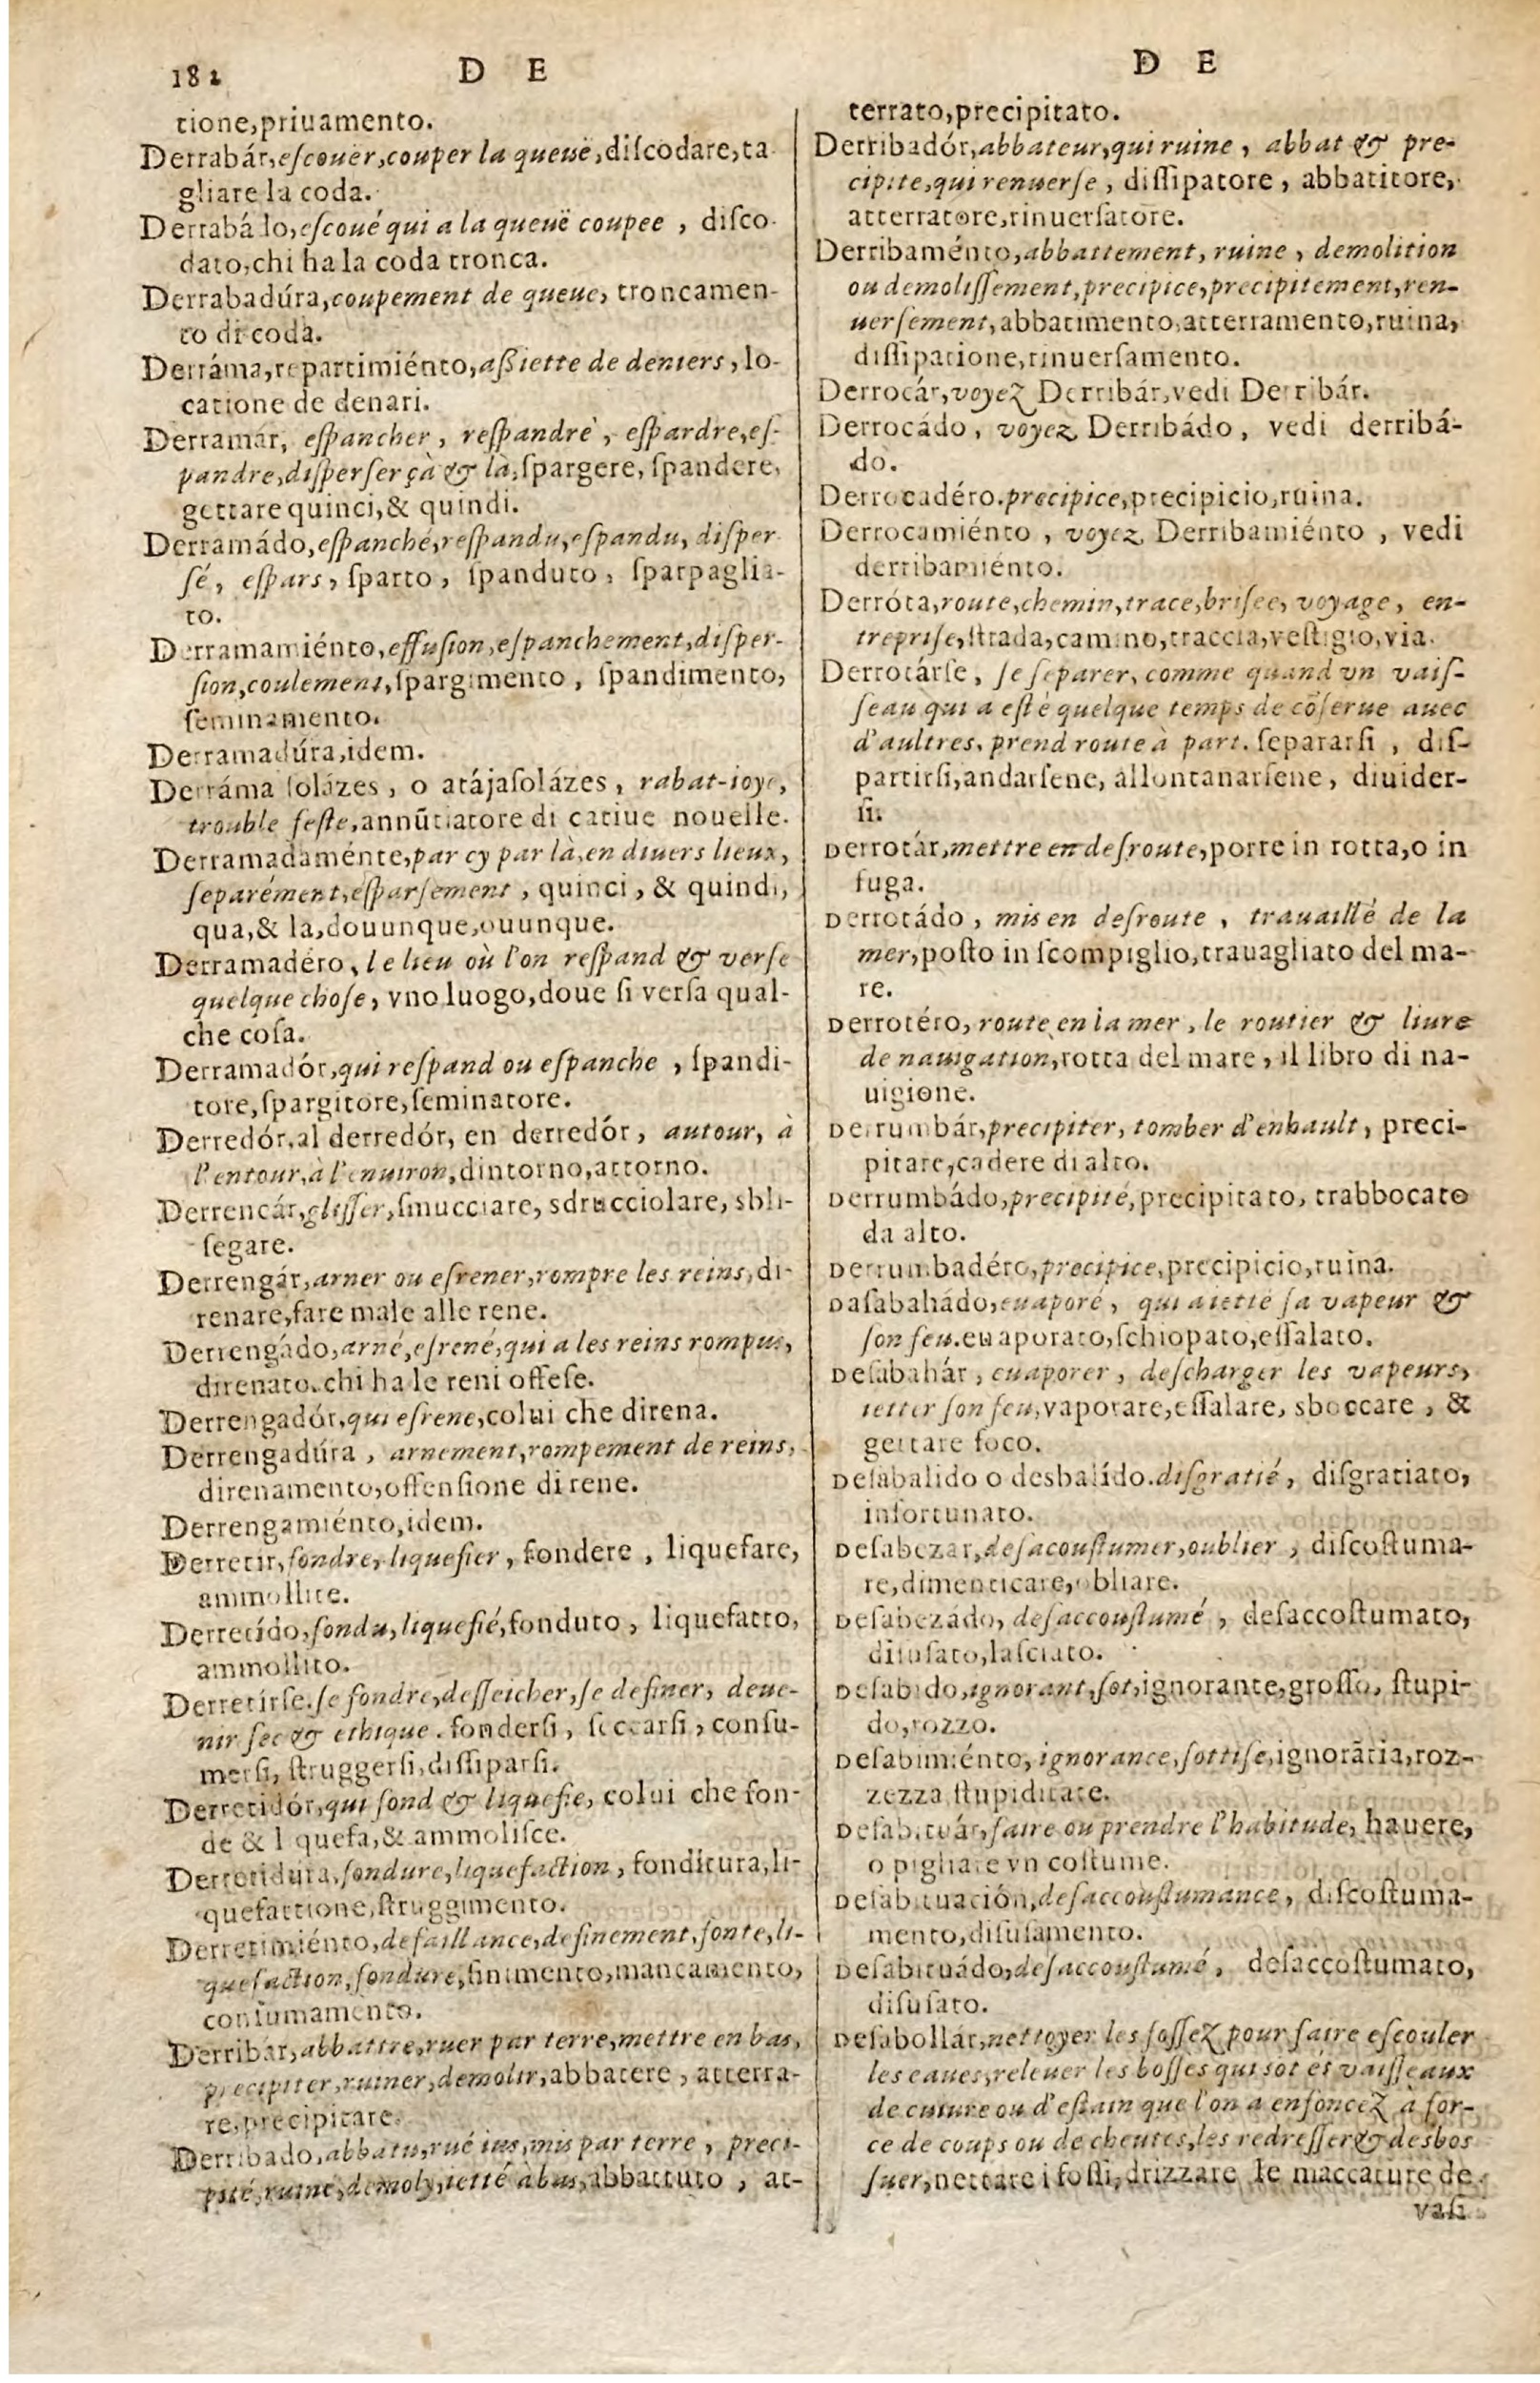 182 D E
tione,priuamento.
Derrabár,eſcouer,couper la queuë,diſcodare,ta
gliare la coda.
Derrabádo,eſcoué qui a la queuë coupee , diſco
dato,chi ha la coda tronca.
Derrabadúra,coupement de queue, troncamen-
to di coda.
Derráma,repartimiénto,aßiette de deniers, lo-
catione de denari.
Derramár, eſpancher, reſpandre, eſpardre,eſ-
pandre,diſperſer çà & là,ſpargere, ſpandere,
gettare quinci,& quindi.
Derramádo,eſpanché,reſpandu,eſpandu, diſper
ſé, eſpars, ſparto, ſpanduto, ſparpaglia-
to.
Derramamiénto,effuſion,eſpanchement,diſper-
ſion,coulement,ſpargimento, ſpandimento,
ſeminamento.
Derramadúra,idem.
Derráma ſolázes, o atájaſolázes, rabat-ioye,
trouble feſte,annũtiatore di catiue nouelle.
Derramadaménte,par cy par là,en diuers lieux,
ſeparément,eſparſement, quinci, & quindi,
qua,& la,douunque,ouunque.
Derramadéro, le lieu où l'on reſpand & verſe
quelque choſe, vno luogo,doue ſi verſa qual-
che coſa.
Derramadór,qui reſpand ou eſpanche , ſpandi-
tore,ſpargitore,ſeminatore.
Derredór,al derredór, en derredór, autour, à
l'entour,à l'enuiron,dintorno,attorno.
Derrencár,gliſſer,ſmucciare, sdrucciolare, sbli-
ſegare.
Derrengár,arner ou eſrener,rompre les reins,di-
renare,fare male alle rene.
Derrengádo,arné,eſrené,qui a les reins rompus,
direnato,chi ha le reni offeſe.
Derrengadór,qui eſrene,colui che direna.
Derrengadúra, arnement,rompement de reins,
direnamento,offenſione di rene.
Derrengamiénto,idem.
Derretir,fondre,liquefier, fondere, liquefare,
ammollire.
Derretído,fondu,liquefié,fonduto, liquefatto,
ammollito.
Derretírſe.ſe fondre,deſſeicher,ſe definer, deue-
nir ſec & ethique. fonderſi, ſeccarſi, conſu-
merſi, ſtruggerſi,diſſiparſi.
Derretidór,qui fond & liquefie, colui che fon-
de & l quefa,& ammoliſce.
Derretidura,fondure,liquefaction, fonditura,li-
quefattione,ſtruggimento.
Derretimiénto,defaillance,definement,fonte,li-
quefaction,fondure,finimento,mancamento,
conſumamento.
Derribár,abbattre,ruer par terre,mettre en bas,
precipiter,ruiner,demolir,abbatere, atterra-
re,precipitare.
Derribado,abbatu,rué ius,mis par terre, preci-
pité,ruiné,demoly,ietté à bas,abbattuto, at-
D E
terrato,precipitato.
Derribadór,abbateur,qui ruine, abbat & pre-
cipite,qui renuerſe, diſſipatore, abbatitore,
atterratore,rinuerſatore.
Derribaménto,abbattement, ruine, demolition
ou demoliſſement,precipice,precipitement,ren-
uerſement,abbatimento,atterramento,ruina,
diſſipatione,rinuerſamento.
Derrocár,voyez Derribár,vedi Derribár.
Derrocádo, voyez Derribádo, vedi derribá-
do.
Derrocadéro.precipice,precipicio,ruina.
Derrocamiénto, voyez Derribamiénto, vedi
derribamiénto.
Derróta,route,chemin,trace,briſee, voyage, en-
trepriſe,ſtrada,camino,traccia,veſtigio,via.
Derrotárſe, ſe ſeparer, comme quand vn vaiſ-
ſeau qui a eſté quelque temps de cõſerue auec
d'aultres, prend route à part. ſepararſi, diſ-
partirſi,andarſene, allontanarſene, diuider-
ſi.
Derrotár,mettre en deſroute,porre in rotta,o in
fuga.
Derrotádo, mis en deſroute, trauaillé de la
mer,poſto in ſcompiglio,trauagliato del ma-
re.
Derrotéro, route en la mer, le routier & liure
de nauigation,rotta del mare, il libro di na-
uigione.
Derrumbár,precipiter, tomber d'enhault, preci-
pitare,cadere di alto.
Derrumbádo,precipité,precipitato, trabboccato
da alto.
Derrumbadéro,precipice,precipicio,ruina.
Daſabahádo,euaporé, qui a ietté ſa vapeur &
ſon feu.euaporato,ſchiopato,eſſalato.
Deſabahár, euaporer, deſcharger les vapeurs,
ietter ſon feu,vaporare,eſſalare, sboccare, &
gettare foco.
Deſabalido o desbalído.diſgratié, diſgratiato,
infortunato.
Deſabezar,deſacouſtumer,oublier, diſcoſtuma-
re,dimenticare,obliare.
Deſabezádo, deſaccouſtumé, deſaccoſtumato,
diſuſato,laſciato.
Deſabido,ignorant,ſot,ignorante,groſſo, ſtupi-
do,rozzo.
Deſabimiénto, ignorance,ſottiſe,ignorãtia,roz-
zezza,ſtupiditate.
Deſabituár,faire ou prendre l'habitude, hauere,
o pigliare vn coſtume.
Deſabituación,deſaccouſtumance, diſcoſtuma-
mento,diſuſamento.
Deſabituádo,deſaccouſtumé, deſaccoſtumato,
diſuſato.
Deſabollár,nettoyer les foſſez pour faire eſcouler
les eaues,releuer les boſſes qui sõt és vaiſſeaux
de cuiure ou d'eſtain que l'on a enfoncez à for-
ce de coups ou de cheutes,les redreſſer & desbos
ſuer,nettare i foſſi,drizzare le maccature de
vaſi